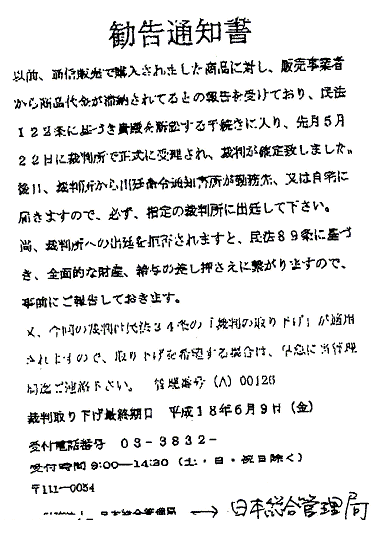 勧告通知書
以前、通信販売で購入されました商品に対し、販売事業者
から商品代金が滞納されてるとの報告を受けており、民法
122条に基づき貴殿を訴訟する手続きに入り、先月5月
22日に裁判所で正式に受理され、裁判が確定致しました。
後日、裁判所から出廷命令通知書所が勤務先、又は自宅に
届きますので、必ず、指定の裁判所に出廷して下さい。
尚、裁判所への出廷を拒否されますと、民法89条に基づ
き、全面的な財産、給与の差し押さえに繋がりますので、
事前にご報告しておきます。
又、今回の裁判は民法34条の「裁判の取り下げ」が適用
されますので、取り下げを希望する場合は、早急に当管理
局迄ご連絡下さい。 管理番号(A)00126
裁判取り下げ最終期日 平成18年6月9日(金)
受付電話番号 03-3832-
受付時間9:00―14:30(土・日・祝日除く)
〒111-0054
日本総合管理局 → 日本総合管理局